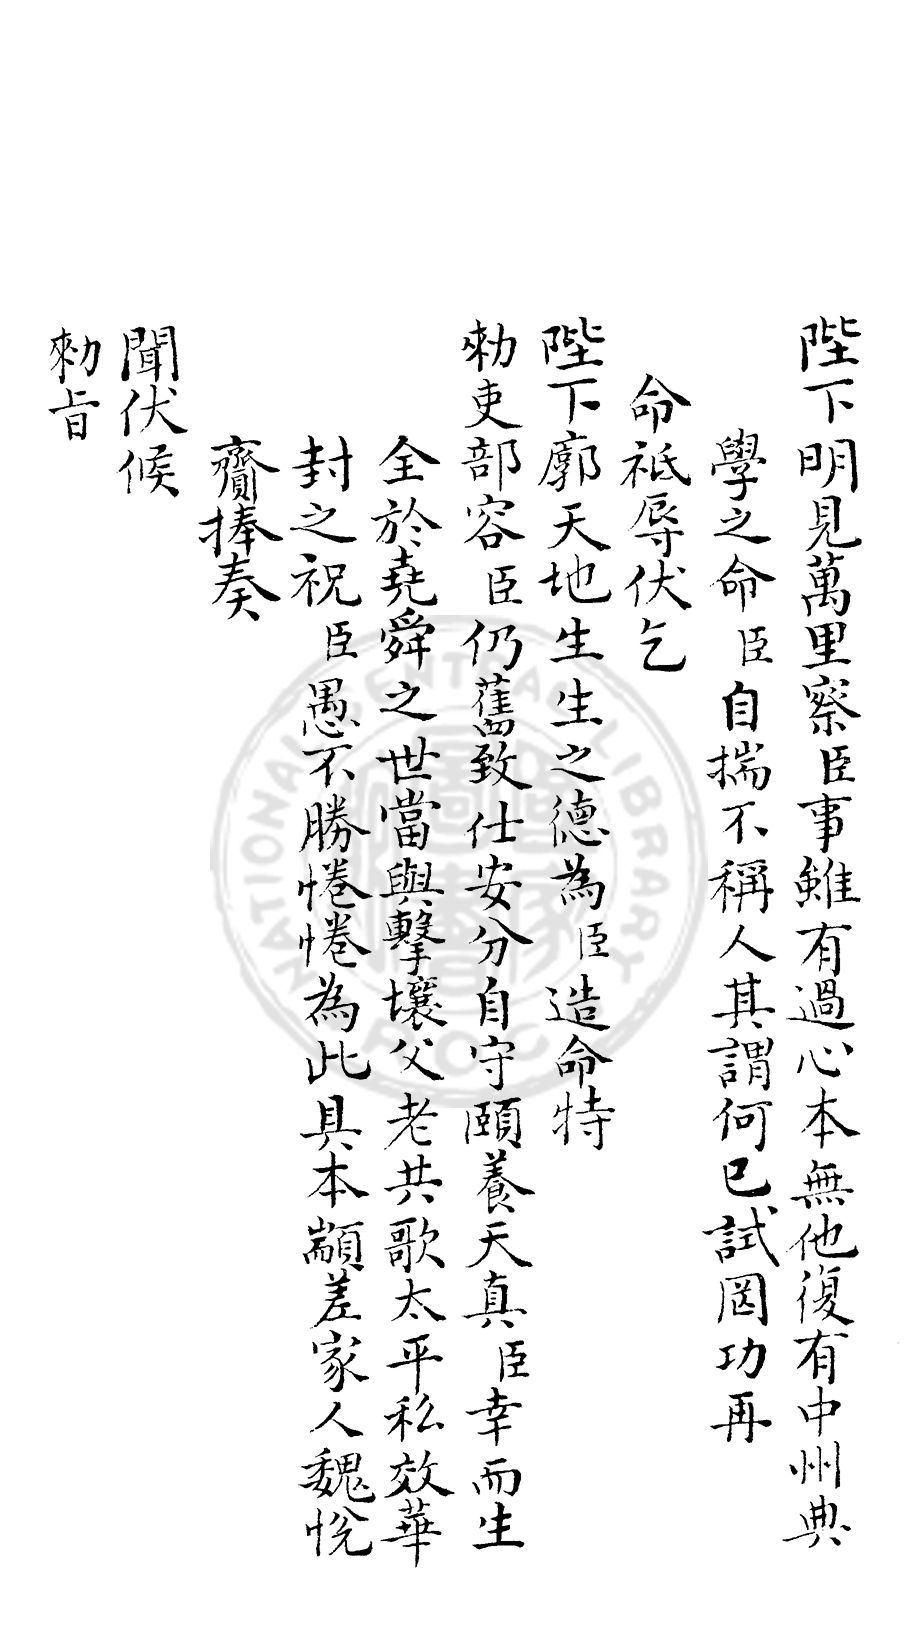 陛下明見萬里察臣事雖有過心本無他復有中州典
學之命臣自揣不稱人其謂何已試罔功再
命祗辱伏乞
陛下廓天地生生之德為臣造命特
勑吏部容臣仍舊致仕安分自守頤養天真臣幸而生
全於堯舜之世當與擊壤父老共歌太平私效華
封之祝臣愚不勝惓惓為此具本顓差家人魏悅
齎捧奏
聞伏候
勑旨
NATIONAL CENTRAL LIBRARY
ROC